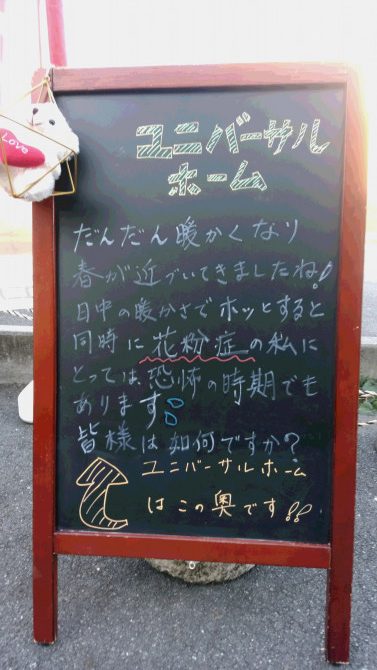 Love
ユニバーサル
ホーム
だんだん暖かくなり
春が近づいてきましたね!
日中の暖かさでホッとすると
同時に花粉症の私に
とっては恐怖の時期でも
あります
皆様は如何ですか?
ユニバーサルホーム
はこの奥です!!